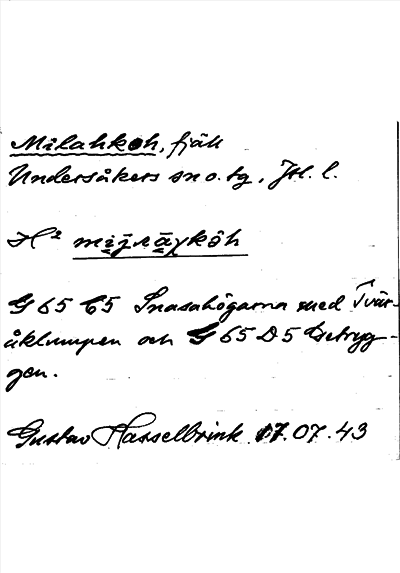 Milahkoh, fjäll
Undersåkers sn o. tg, Jtl. l.
H² mij̄ʌäχkŏh
G 65 C5 Snasahögarna med Tvär-
åklumpen och G 65 D5 Getryg-
gen.
Gustav Hasselbrink 17.07.43